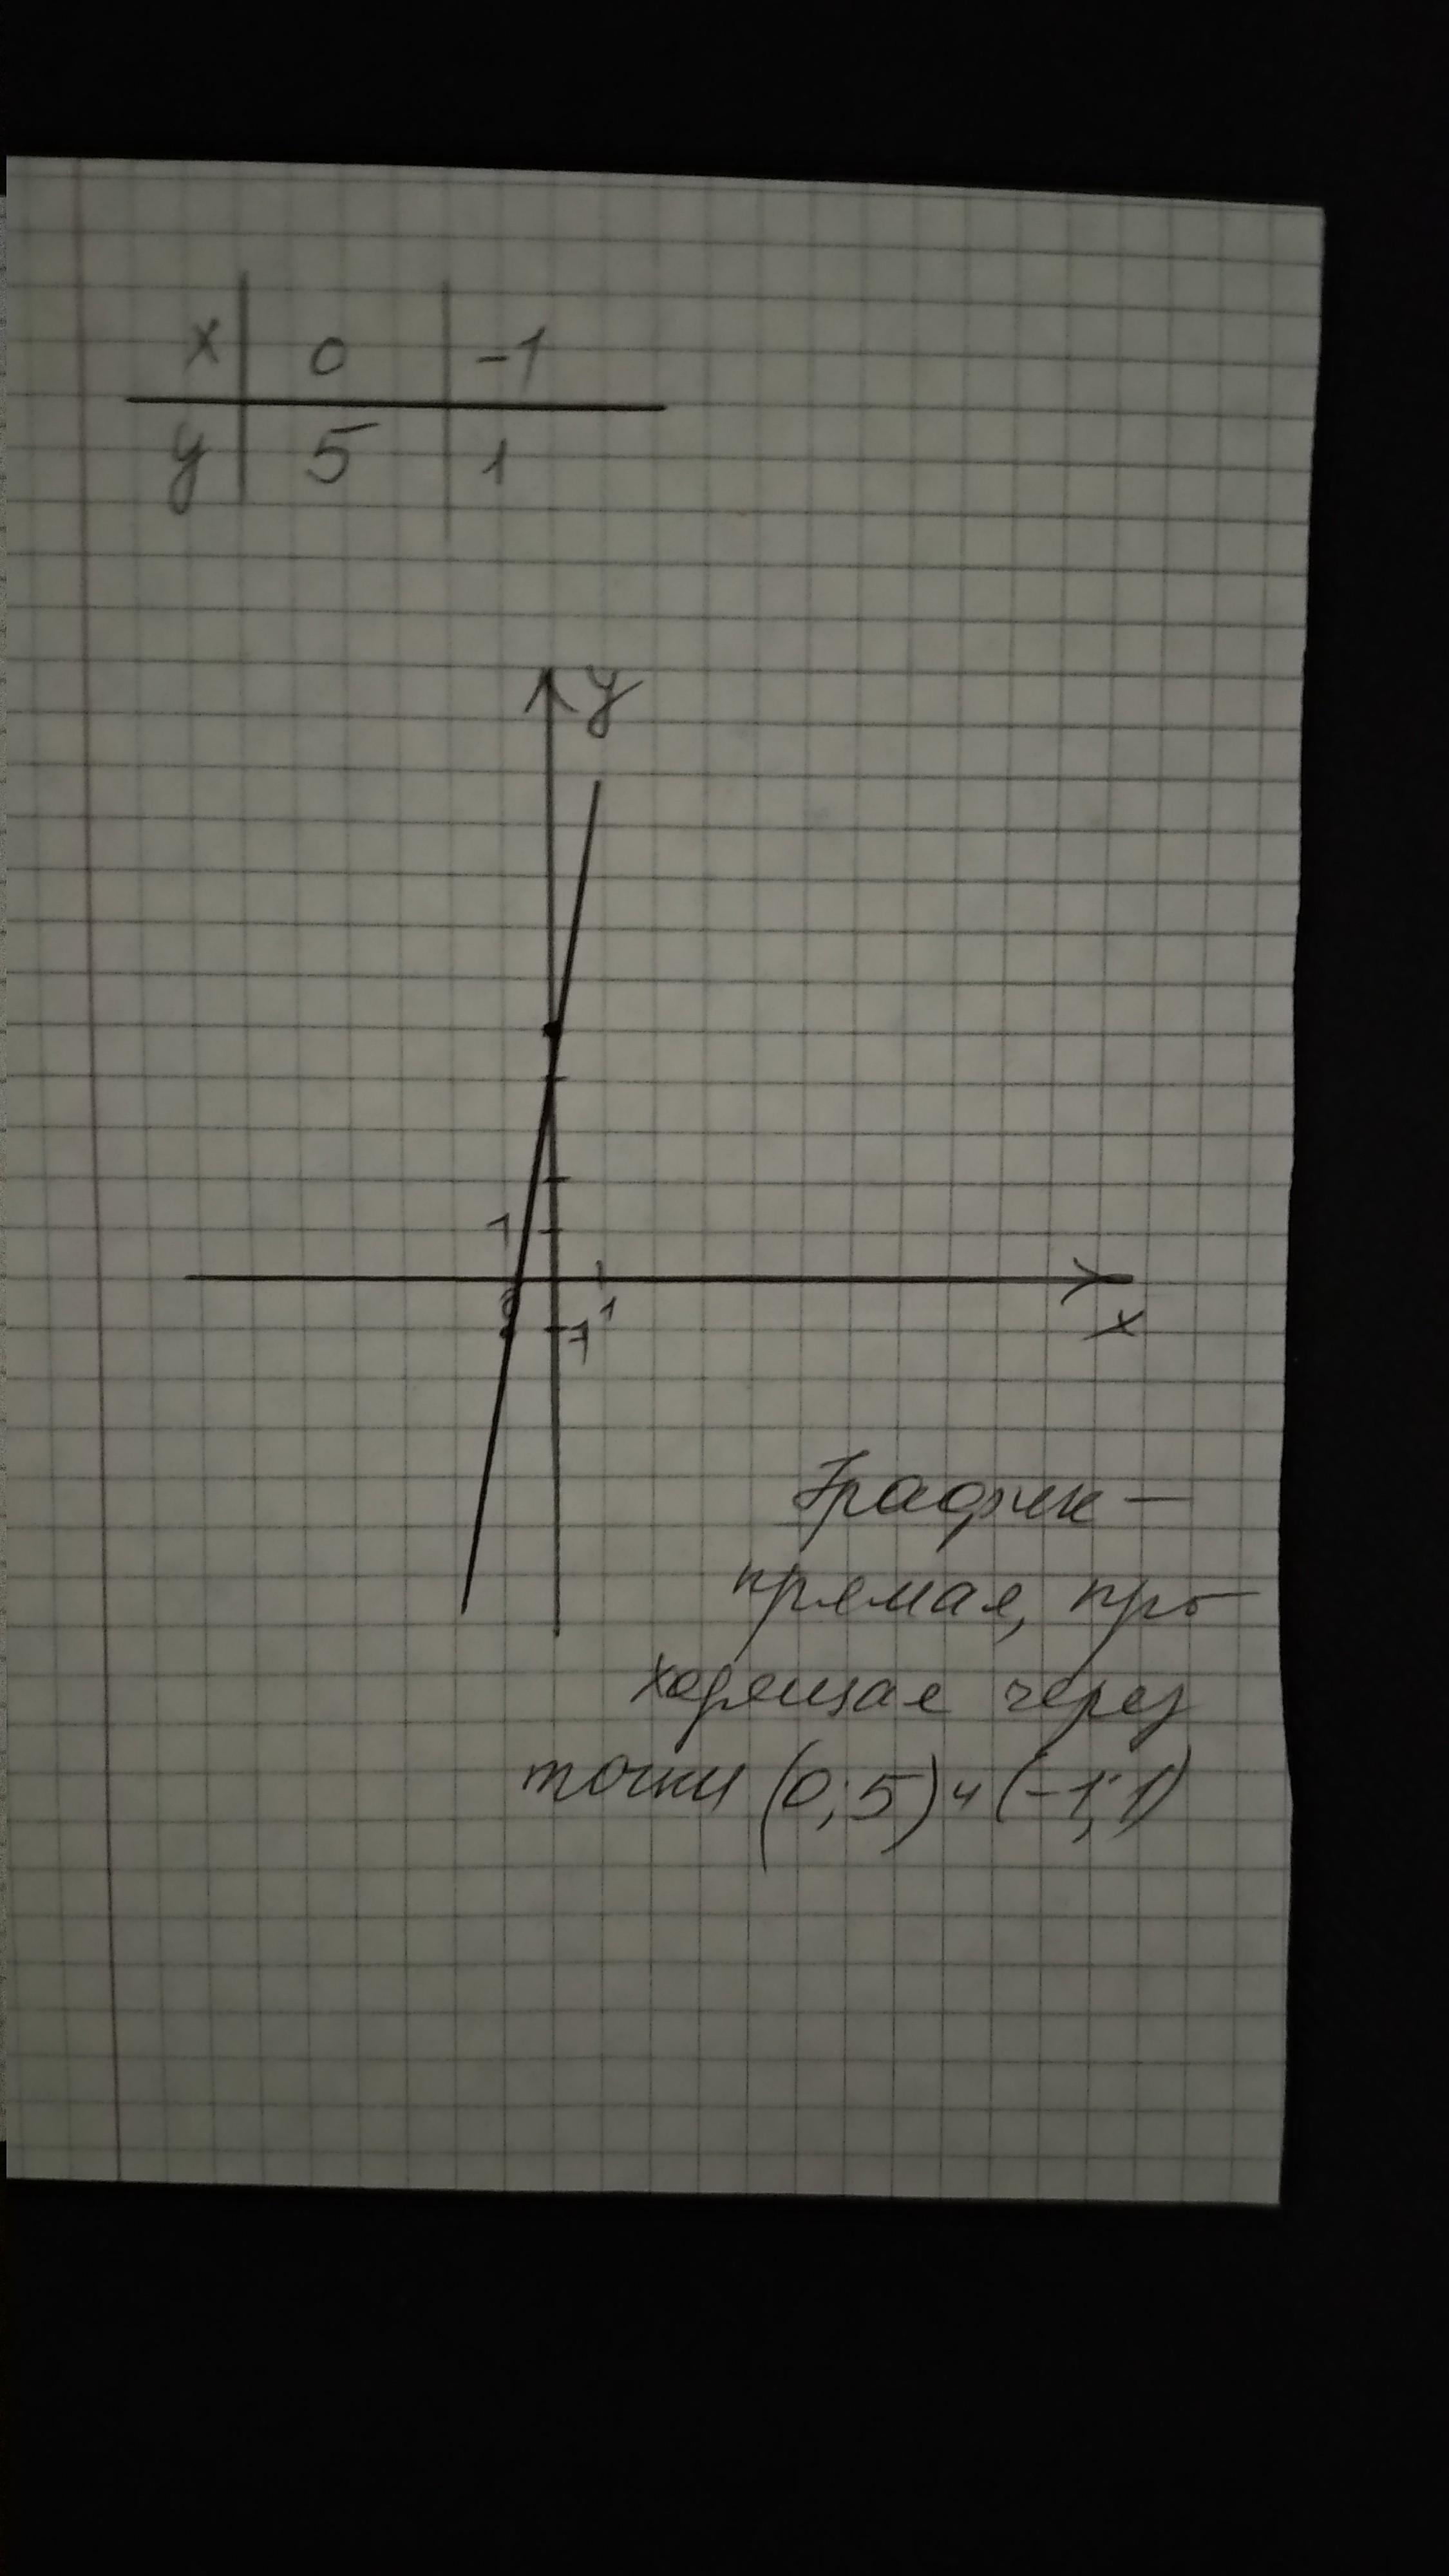 x 0 -1
y 5 1
y
1
1
x
-1
График —
прямая, про
ходящая через
точки (0; 5) и (-1; 1)